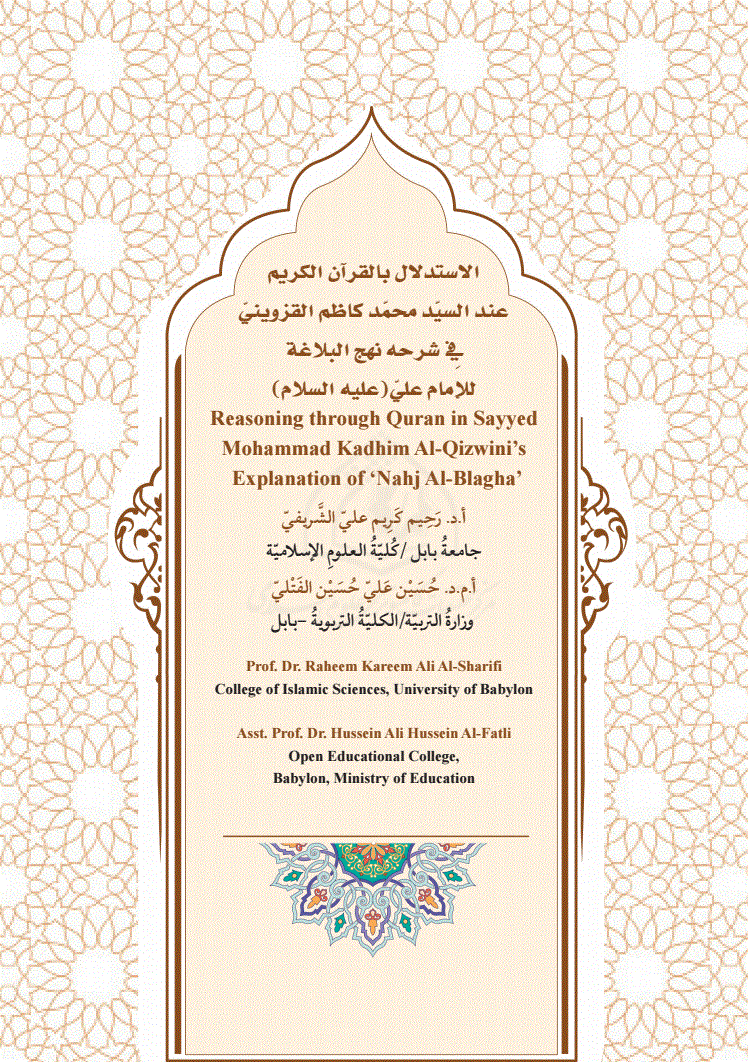 الاستدلال بالقرآن الكريم
عند السيّد محمّد كاظم القزوينيّ
فِي شرحه نهج البلاغة
للإمام عليّ(عليه السلام)
Reasoning through Quran in Sayyed
Mohammad Kadhim Al-Qizwini’s
Explanation of ‘Nahj Al-Blagha’
أ.د. رَحِيم كَرِيم عليّ الشَّريفيّ
جامعةُ بابل /كُليّةُ العلومِ الإسلاميّة
أ.م.د. حُسَيْن عَليّ حُسَيْن الفَتْليّ
وزارةُ التربيّة/الكليّةُ التربويةُ –بابل
Prof. Dr. Raheem Kareem Ali Al-Sharifi
College of Islamic Sciences, University of Babylon
Asst. Prof. Dr. Hussein Ali Hussein Al-Fatli
Open Educational College,
Babylon, Ministry of Education